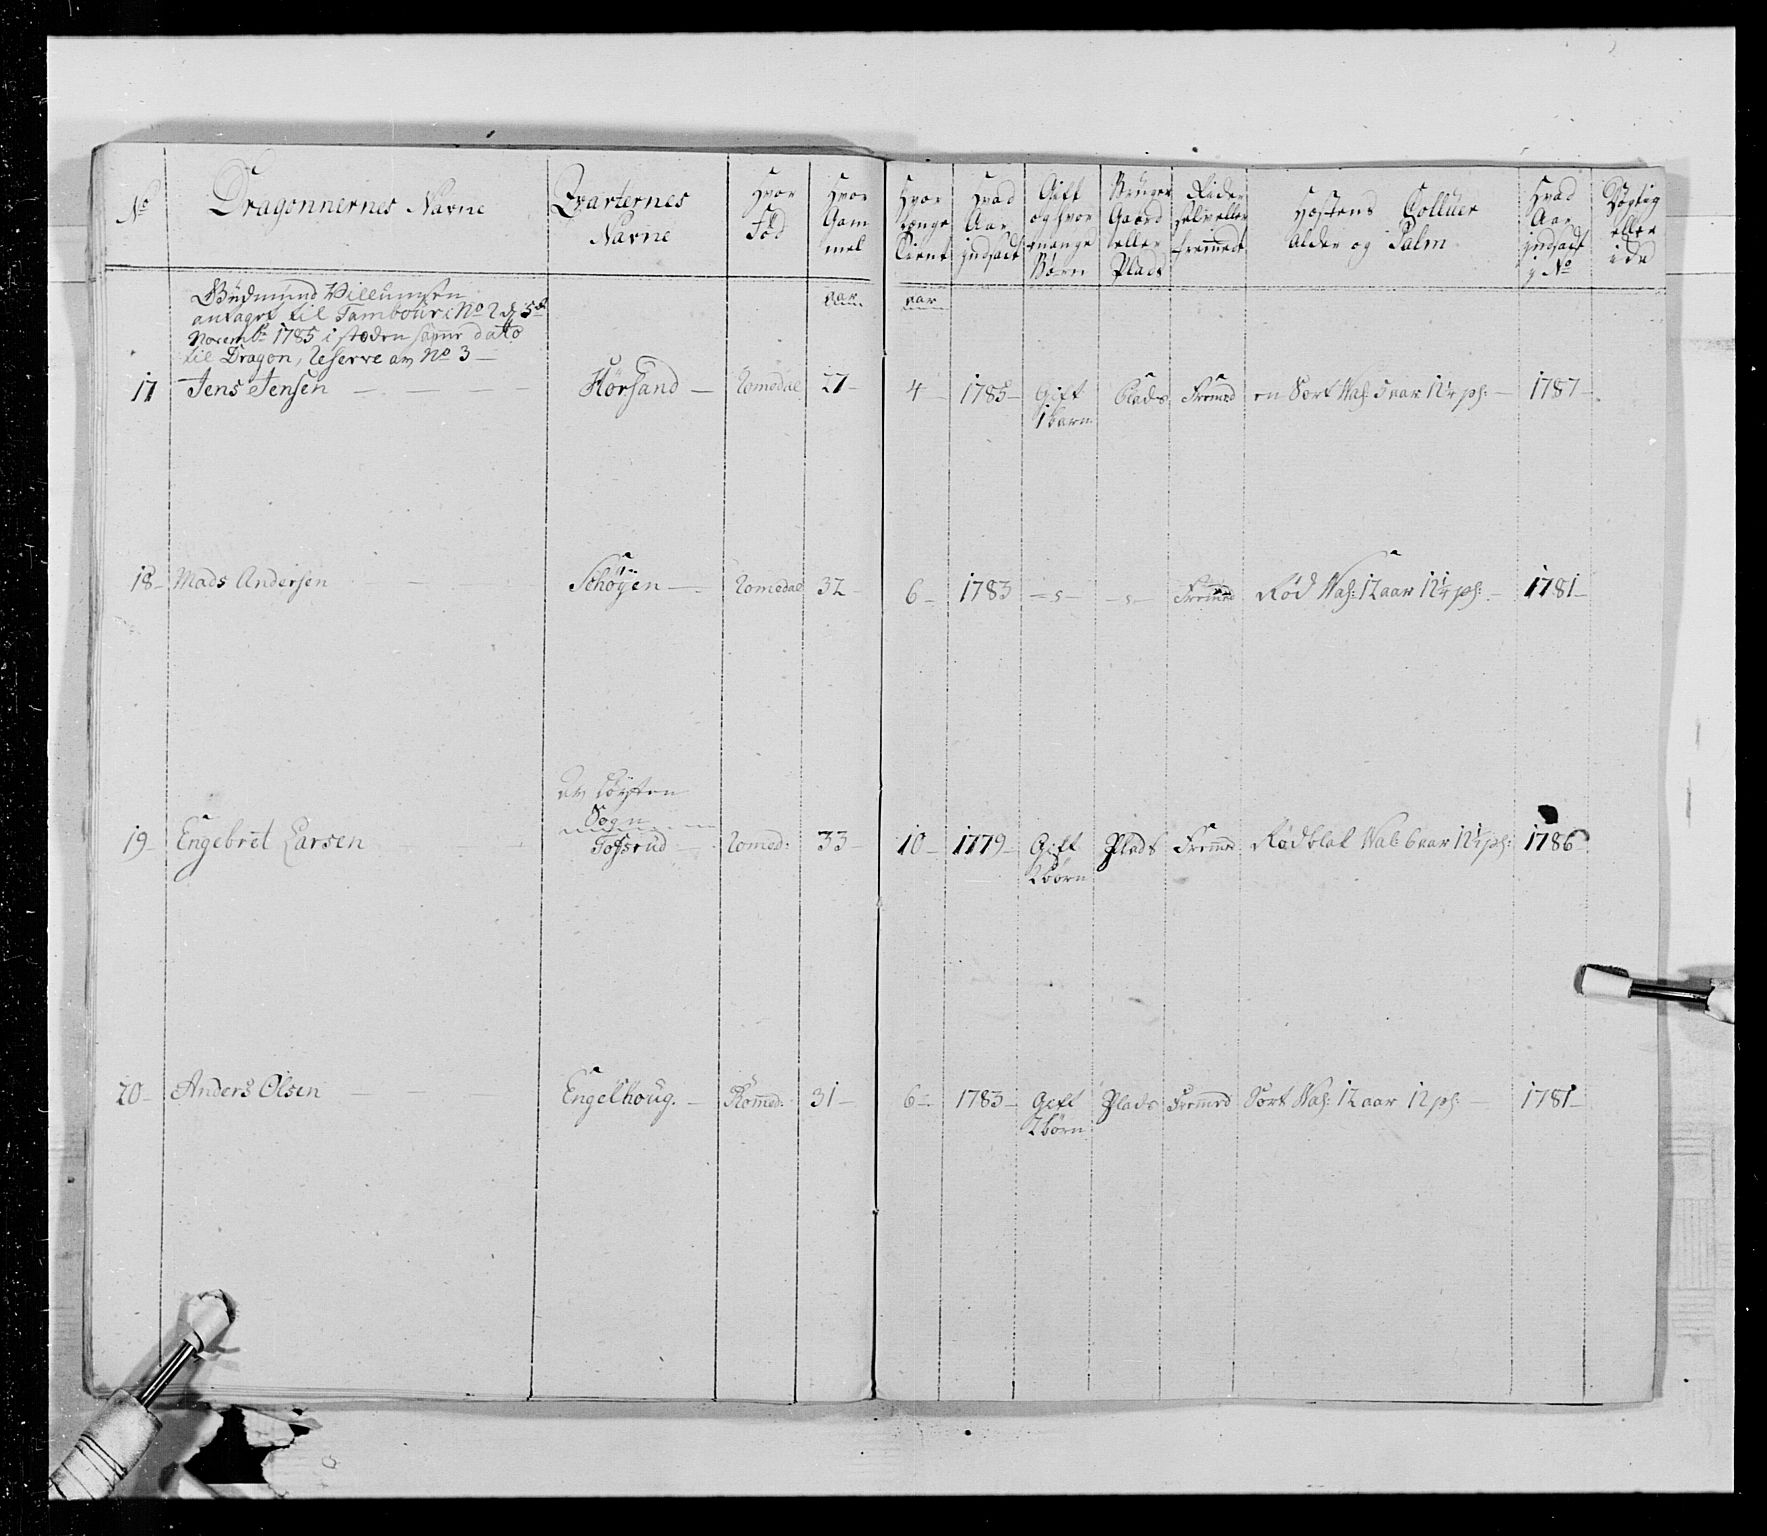 No
Dragonnernes Navne
Qvarternes
Navne
Hvor
Fød
Hvor
Gam
mel
Hvor
længe
Tient
Hvad
Aar
indsadt
Gift
og hvor
mange
Børn
Bruger
Gaard
eller
Plads
Rider
selv eller
fremmed
Hæstens Colluer
Alder og Palm
Hvad
Aar
indsadt
i No
Døgtig
eller
icke
Gudmund Villumsen
antaget til Tambour i No 2 d 5te
Novembr 1785 i stæden samme dato
til Dragon, Reserve av No 3 —
aar
aar
17 Jens Jensen — Hörsand — Romedal 27 — 4 — 1785 — Gift Plads Fremed en Sort Val: 5 aar 12 1/4 ph: — 1787 —
1 barn
18 — Mads Andersen — Schöÿen — Romedal 32 — 6 — 1783 — s — — s — Fremed Rød Val: 12 aar 12 1/4 ph: — 1781 —
av Löyten
Sogn
19 — Engebret Larsen Tofsrud — Romed: 33 — 10 — 1779 — Gift Plads Fremed Rødblak Val: 6 aar 12 1/2 ph: 1786
2 børn
20 — Anders Olsen — Engelhoug. — Romed: 31 — 6 — 1783 — Gift Plads Fremed Sort Val: 12 aar 12 ph: — 1781 —
2 børn